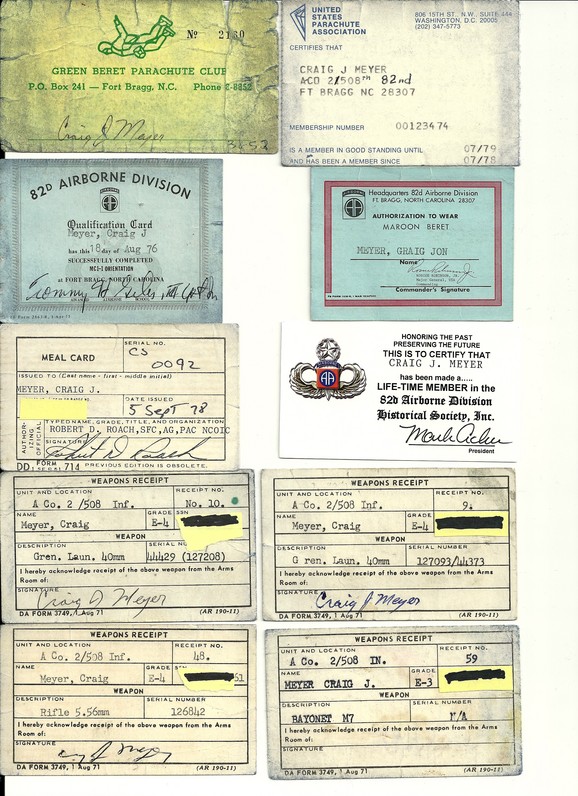 Nº 2130
GREEN BERET PARACHUTE CLUB
P.O. Box 241 — Fort Bragg, N.C. Phone
Craig J Meyer
UNITED
STATES
PARACHUTE
ASSOCIATION
806 15TH ST., N.W. SUITE 444
WASHINGTON, D.C. 20005
(202) 347-5773
CERTIFIES THAT
CRAIG J MEYER
ACO 2/508th 82nd
FT BRAGG NC 28307
MEMBERSHIP NUMBER 00123474
IS A MEMBER IN GOOD STANDING UNTIL 07/79
AND HAS BEEN A MEMBER SINCE 07/78
82D AIRBORNE DIVISION
Qualification Card
Meyer, Craig J
has this 18 day of Aug 76
SUCCESSFULLY COMPLETED
MC1-1 ORIENTATION
at FORT BRAGG, NORTH CAROLINA
Headquarters 82d Airborne Division
FT. BRAGG, NORTH CAROLINA 28307
AUTHORIZATION TO WEAR
MAROON BERET
MEYER, GRAIG JON
Name
Commander's Signature
MEAL CARD
SERIAL NO.
CS
0092
ISSUED TO (Last name - first - middle initial)
MEYER, CRAIG J.
DATE ISSUED
5 Sept 78
AUTHORIZING OFFICIAL
TYPED NAME, GRADE, TITLE, AND ORGANIZATION
ROBERT D, ROACH,SFC,AG,PAC NCOIC
SIGNATURE
Robert D Roach
DD FORM 714 PREVIOUS EDITION IS OBSOLETE.
HONORING THE PAST
PRESERVING THE FUTURE
THIS IS TO CERTIFY THAT
CRAIG J. MEYER
has been made a.....
LIFE-TIME MEMBER in the
82D Airborne Division
Historical Society, Inc.
President
WEAPONS RECEIPT
UNIT AND LOCATION RECEIPT NO.
A Co. 2 /508 Inf. No. 10.
NAME GRADE SSN
Meyer, Craig E-4
WEAPON
DESCRIPTION SERIAL NUMBER
Gren. Laun. 40mm 44429 (127208)
I hereby acknowledge receipt of the above weapon from the Arms
Room of:
SIGNATURE
Craig J Meyer
DA FORM 3749, 1 Aug 71 (AR 190-11)
WEAPONS RECEIPT
UNIT AND LOCATION RECEIPT NO.
A Co. 2/508 Inf. 9.
NAME GRADE
Meyer, Craig E-4
WEAPON
DESCRIPTION SERIAL NUMBER
G ren. Laun. 40mm 127093/44373
I hereby acknowledge receipt of the above weapon from the Arms
Room of:
SIGNATURE
Craig J Meyer
DA FORM 3749, 1 Aug 71 (AR 190-11)
WEAPONS RECEIPT
UNIT AND LOCATION RECEIPT NO.
A Co. 2/508 Inf. 48.
NAME GRADE
Meyer, Craig E-4
WEAPON
DESCRIPTION SERIAL NUMBER
Rifle 5.56mm 126842
I hereby acknowledge receipt of the above weapon from the Arms
Room of:
SIGNATURE
DA FORM 3749, 1 Aug 71 (AR 190-11)
WEAPONS RECEIPT
UNIT AND LOCATION RECEIPT NO.
A Co. 2/508 IN. 59
NAME GRADE
MEYER CRAIG J. E-3
WEAPON
DESCRIPTION SERIAL NUMBER
BAYONET M7 n/A
I hereby acknowledge receipt of the above weapon from the Arms
Room of:
SIGNATURE
DA FORM 3749, 1 Aug 71 (AR 190-11)